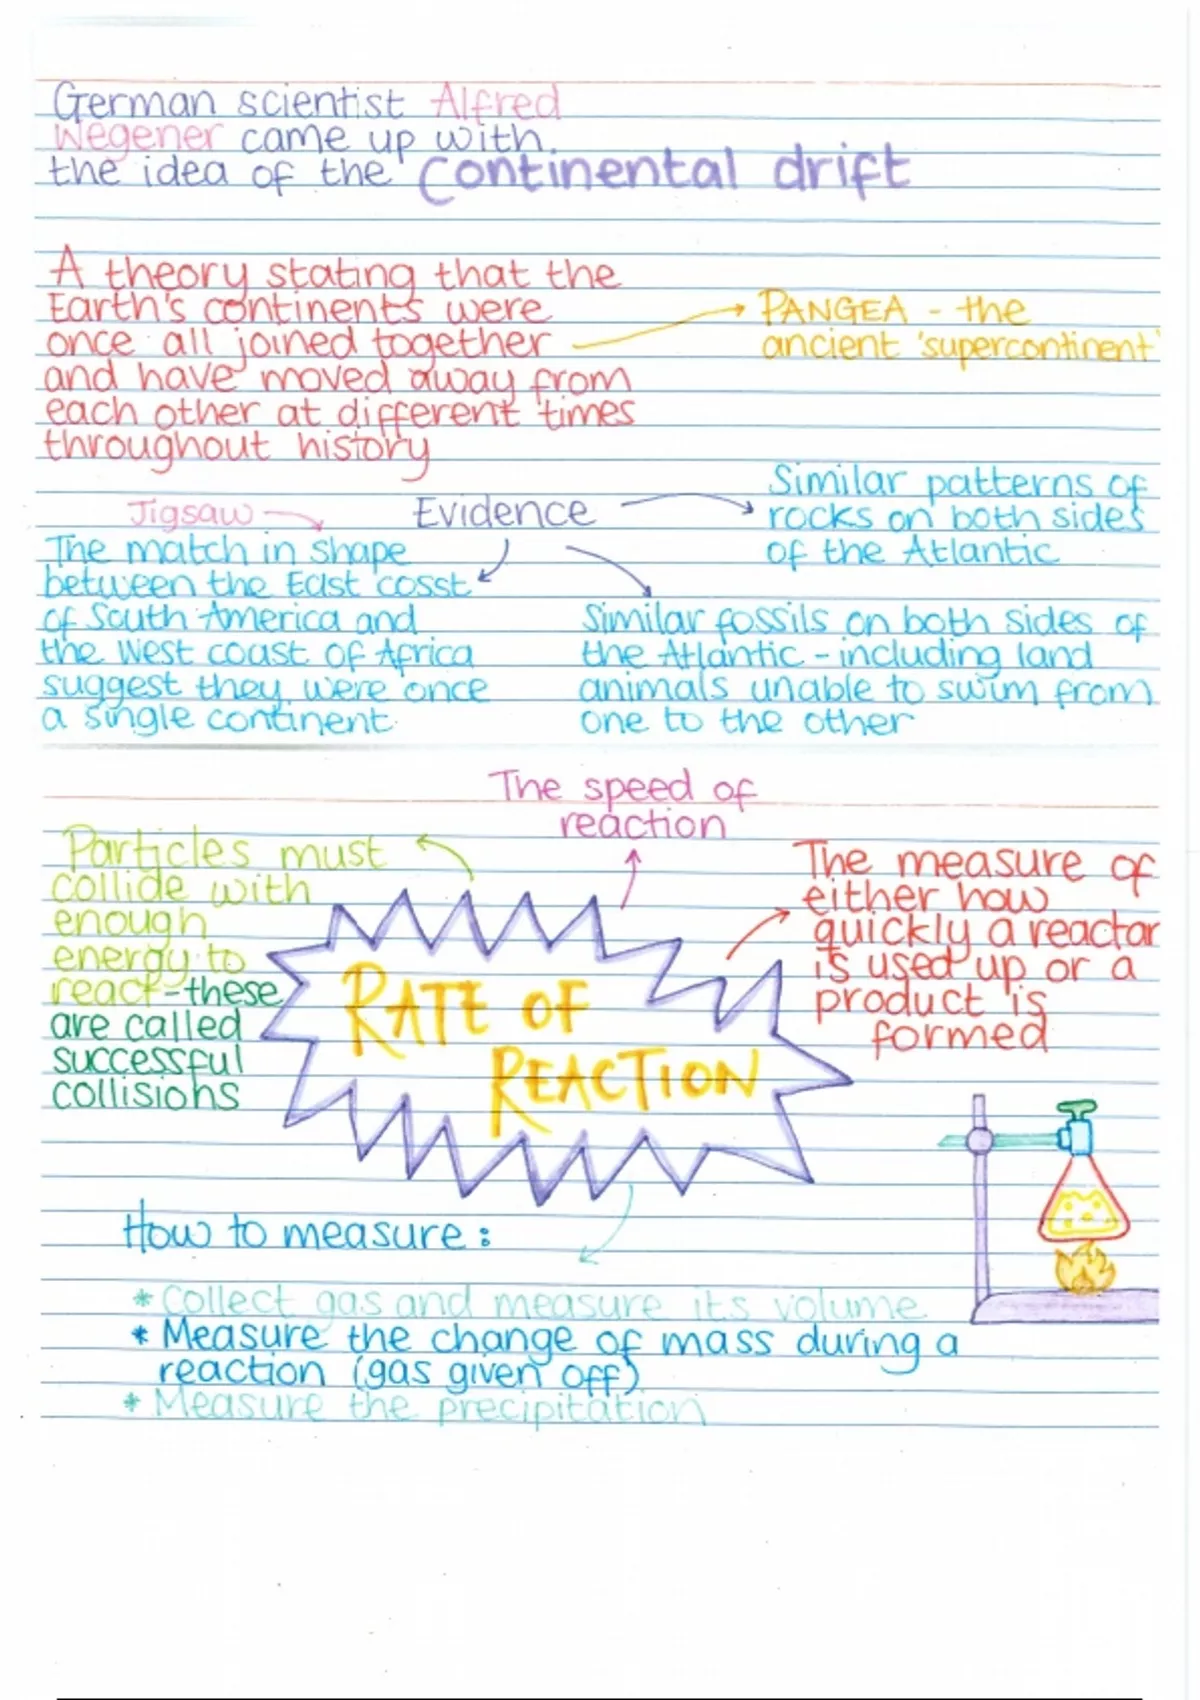 German scientist Alfred
Wegener came up with
the idea of the Continental drift
A theory stating that the
Earth's continents were
once all joined together
and have moved away from
each other at different times
throughout history
PANGEA - the
ancient 'supercontinent'
Jigsaw
Evidence
Similar patterns of
rocks on both sides
of the Atlantic
The match in shape
between the East cosst
of South America and
the West coast of Africa
suggest they were once
a single continent
Similar fossils on both sides of
the Atlantic - including land
animals unable to swim from
one to the other
The speed of
reaction
Particles must
collide with
enough
energy to
react - these
are called
successful
collisions
The measure of
either how
quickly a reactar
is used up or a
product is
formed
RATE OF
REACTION
How to measure:
* Collect gas and measure its volume
* Measure the change of mass during a
reaction (gas given off)
* Measure the precipitation